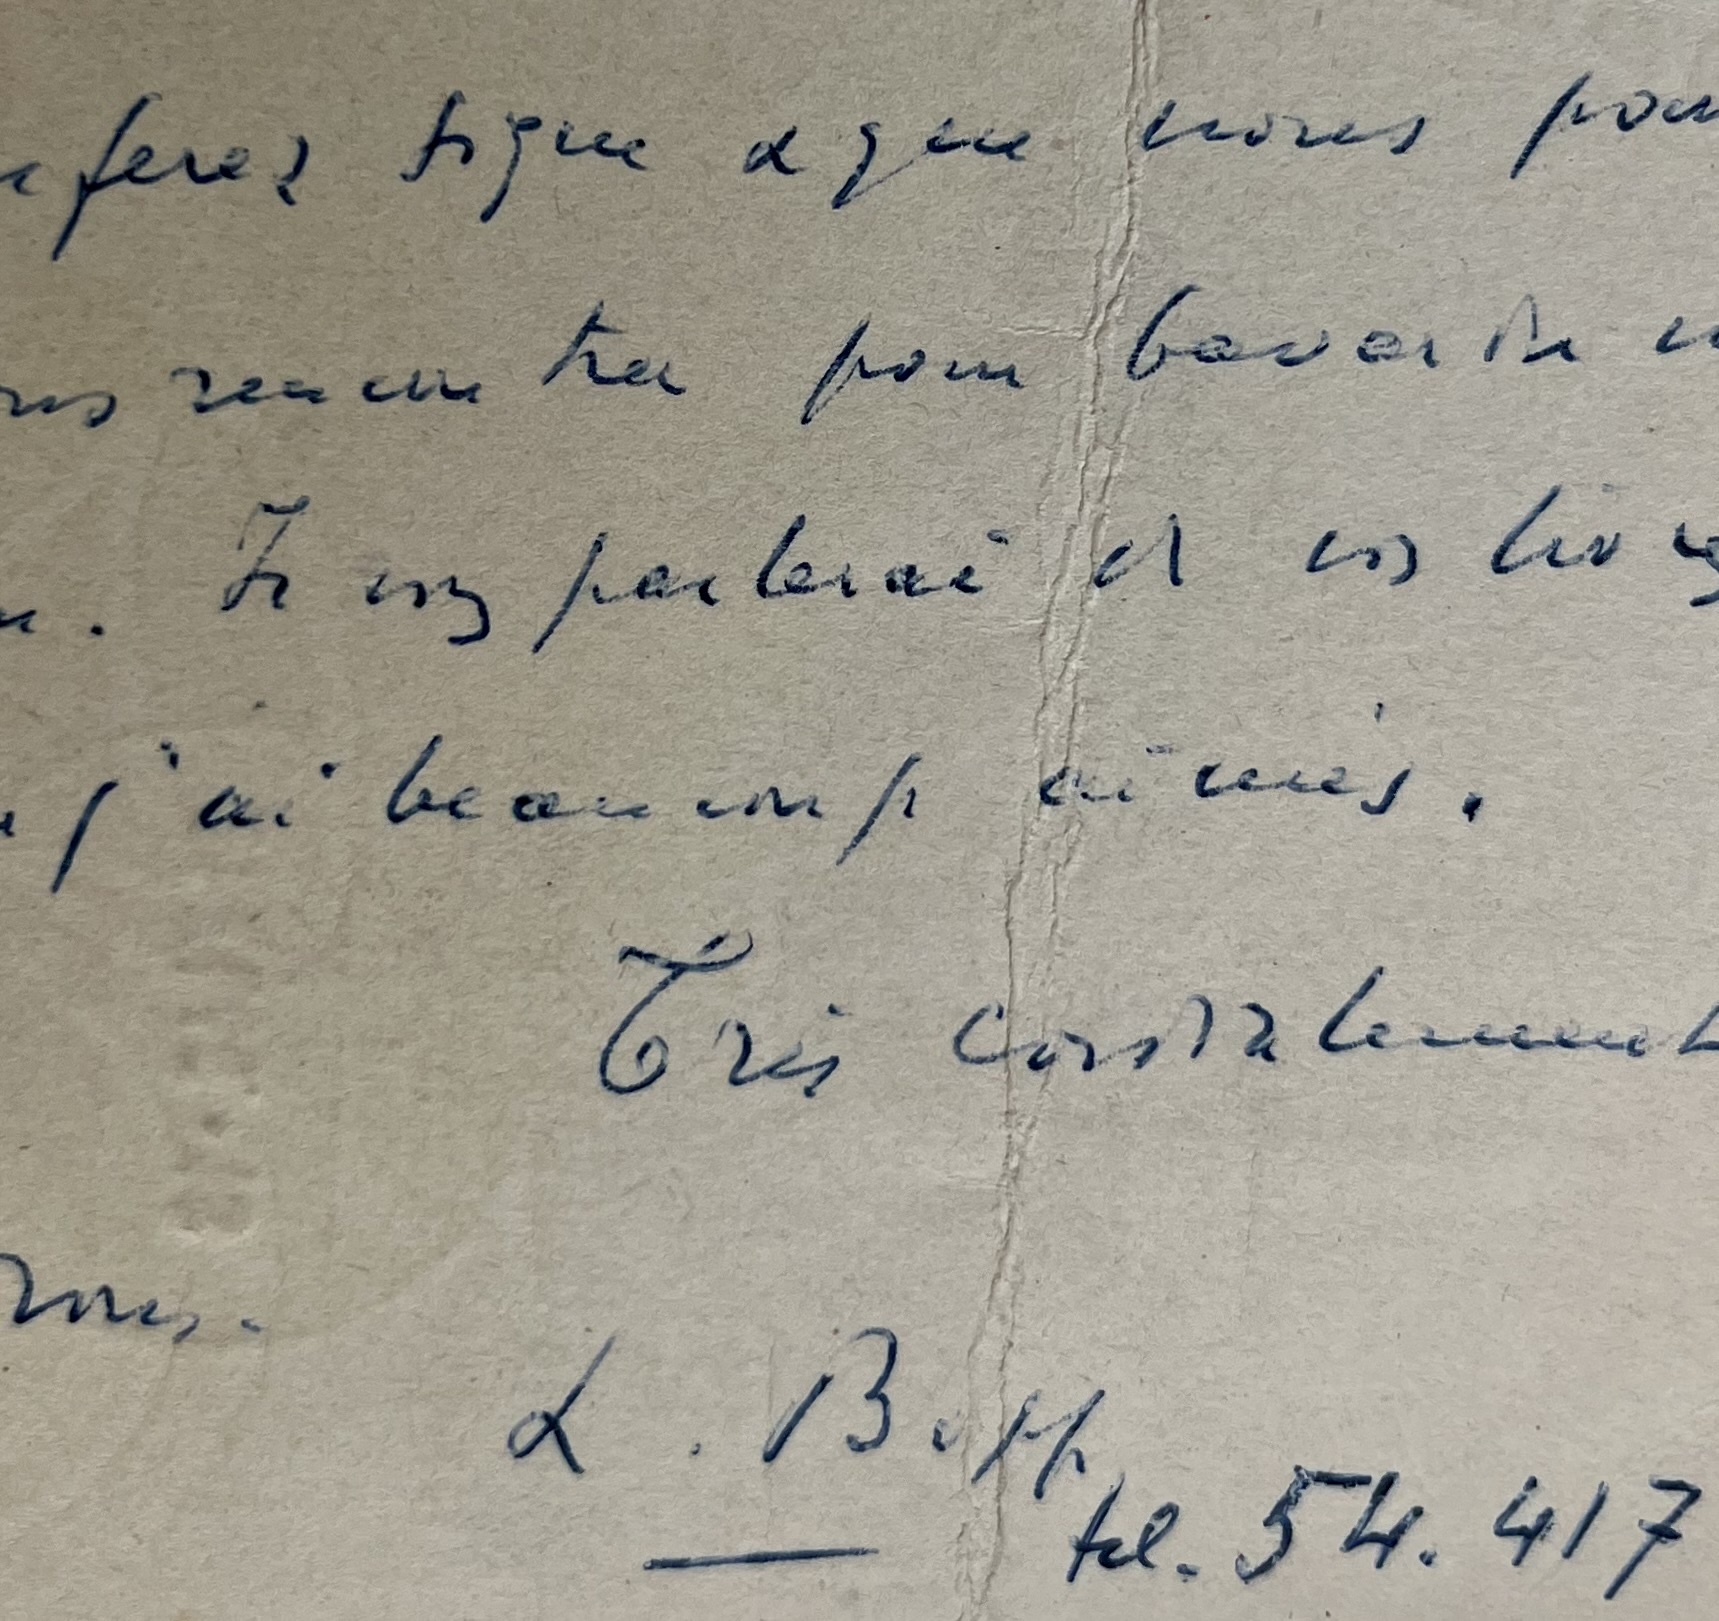 ferez signe & que nous pour
rencontrer pour bavarder
. Je vous parlerai de vos livres
j'ai beaucoup aimés.
Très cordialement
L. Bopp
tel. 54.417